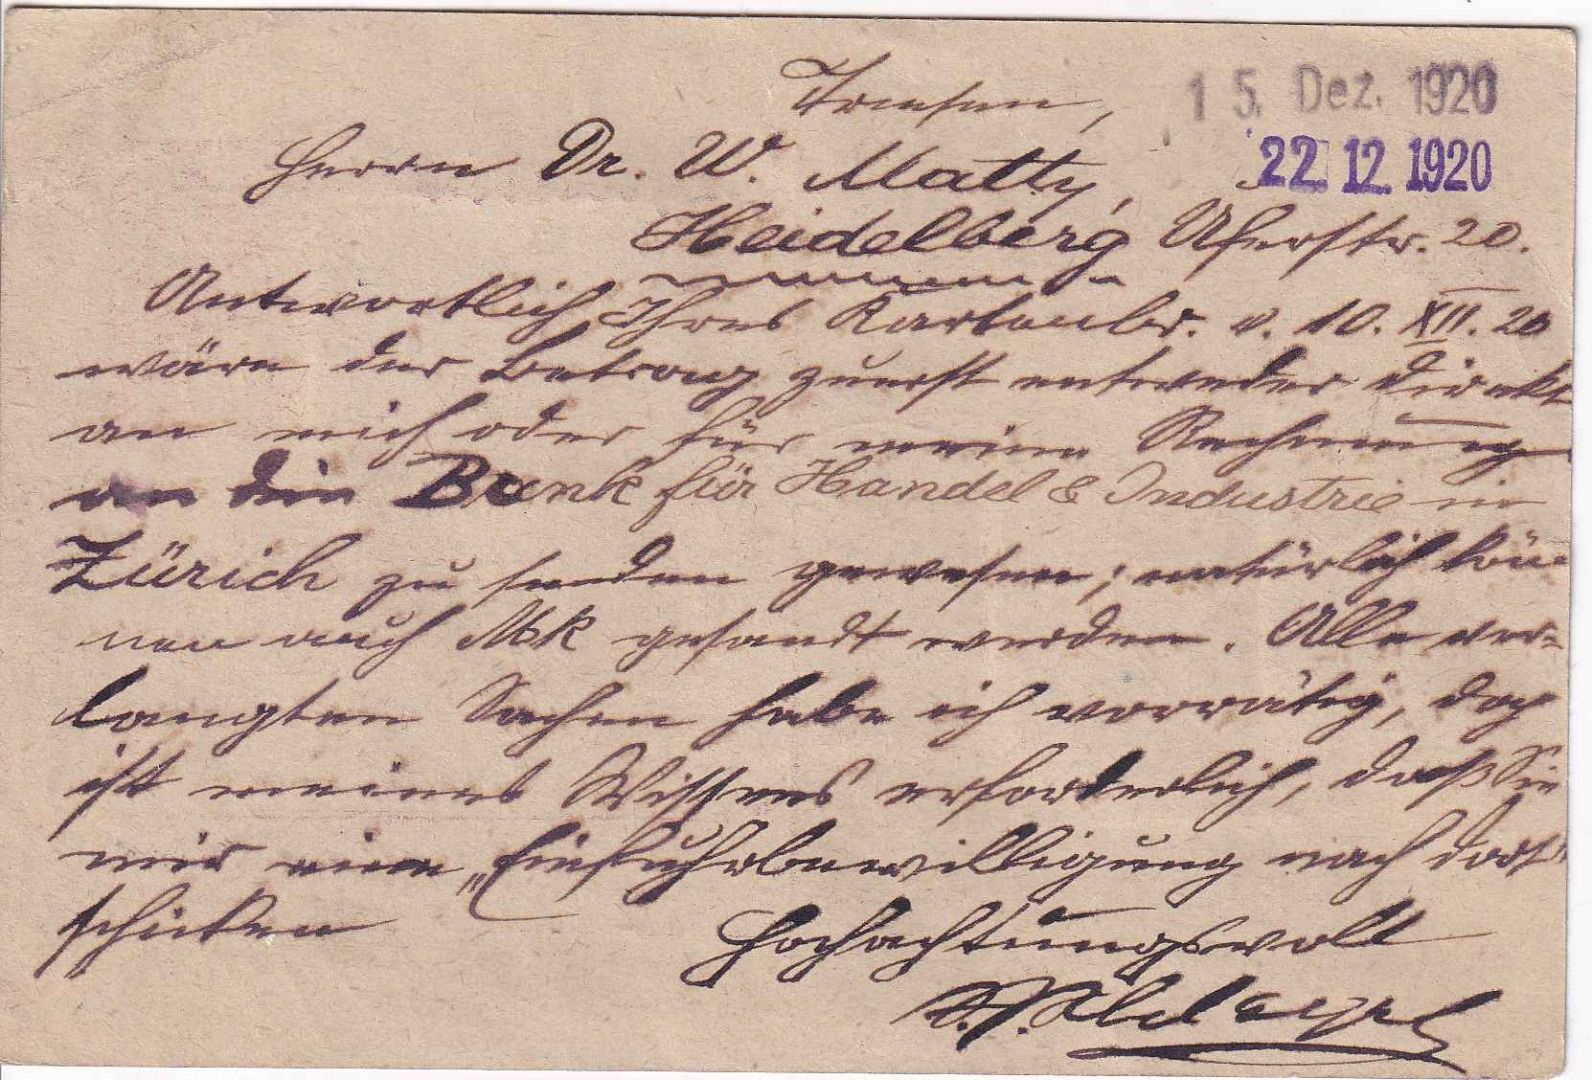 Triesen, 15. Dez. 1920
22.12.1920
Herrn Dr. W. Matty,
Heidelberg Uferstr. 20.
Antwortlich Ihres Kartenbr. v. 10. XII. 20
wäre der Betrag zuerst entweder direkt
an mich oder für meine Rechnung
an die Bank für Handel & Industrie in
Zürich zu senden gewesen; natürlich kön-
nen auch Mk gesandt werden. Alle ver-
langten Sachen habe ich vorrätig, doch
ist meines Wissens erforderlich, daß Sie
mir eine „Einfuhrbewilligung nach dort"
schicken
Hochachtungsvoll